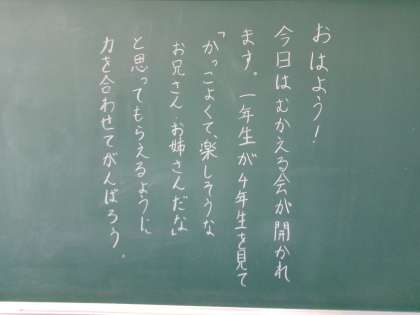 おはよう!
今日はむかえる会が開かれ
ます。一年生が4年生を見て
「かっこよくて、楽しそうな
お兄さん・お姉さんだな」
と思ってもらえるように
力を合わせてがんばろう。